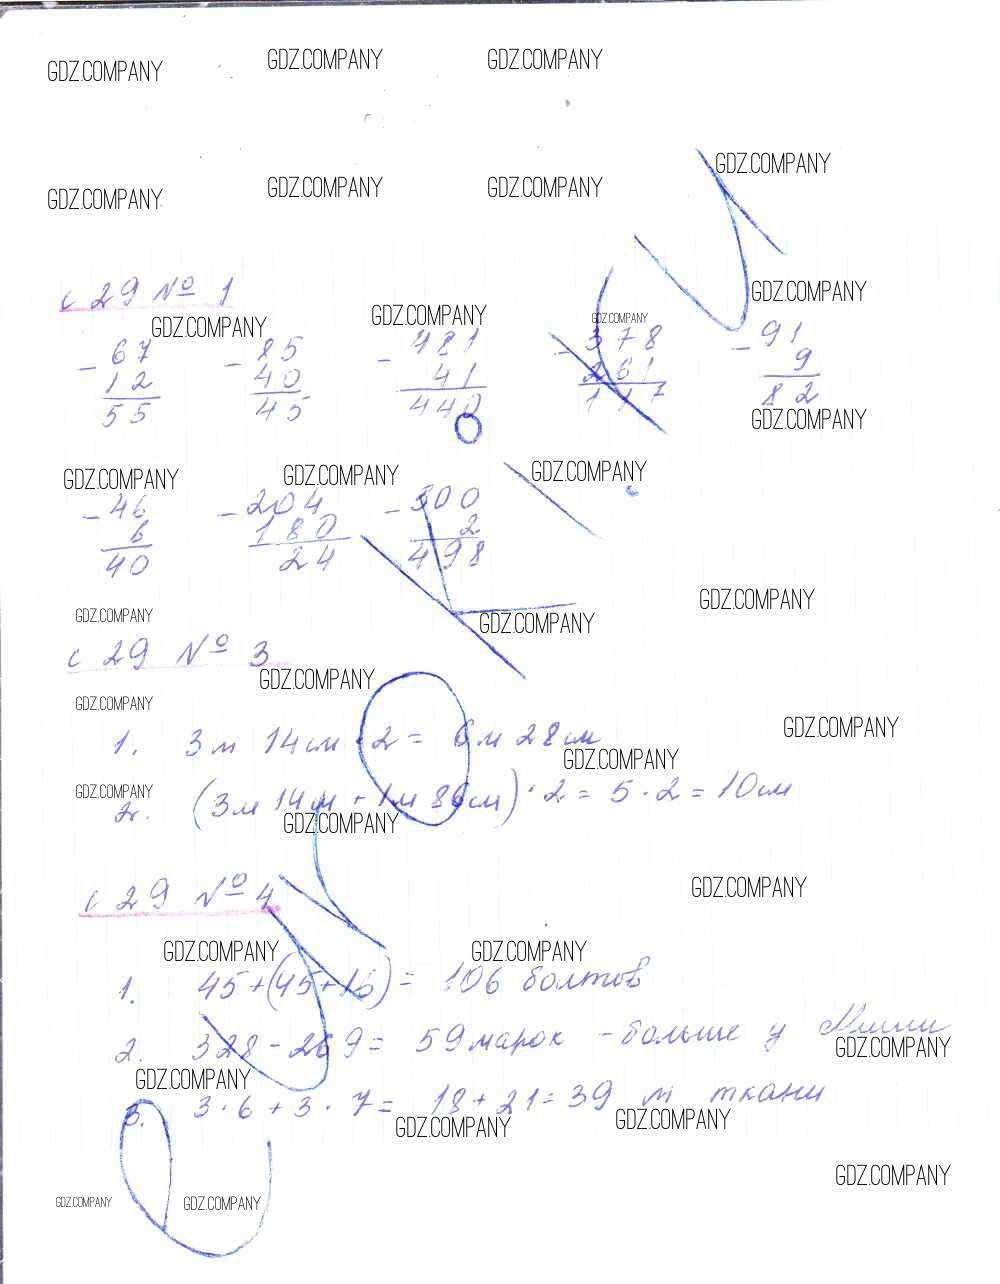 GDZ.COMPANY GDZ.COMPANY GDZ.COMPANY
GDZ.COMPANY
GDZ.COMPANY GDZ.COMPANY GDZ.COMPANY
с 29 № 1
GDZ.COMPANY
GDZ.COMPANY GDZ.COMPANY GDZ.COMPANY
- 67 - 85 - 481 - 378 - 91
12 40 41 261 9
55 45 440 117 82
GDZ.COMPANY
GDZ.COMPANY GDZ.COMPANY GDZ.COMPANY
- 46 - 204 - 500
6 180 2
40 24 498
GDZ.COMPANY GDZ.COMPANY GDZ.COMPANY
с 29 № 3
GDZ.COMPANY
GDZ.COMPANY GDZ.COMPANY
1. 3м 14см · 2 = 6м 28см
GDZ.COMPANY
GDZ.COMPANY
2. (3м 14см + 1м 86см) · 2 = 5 · 2 = 10см
GDZ.COMPANY
GDZ.COMPANY
с 29 № 4
GDZ.COMPANY GDZ.COMPANY
1. 45 + (45 + 16) = 106 болтов
2. 328 - 269 = 59 марок - больше у Миши
GDZ.COMPANY
GDZ.COMPANY
3. 3 · 6 + 3 · 7 = 18 + 21 = 39 м ткани
GDZ.COMPANY GDZ.COMPANY
GDZ.COMPANY
GDZ.COMPANY GDZ.COMPANY